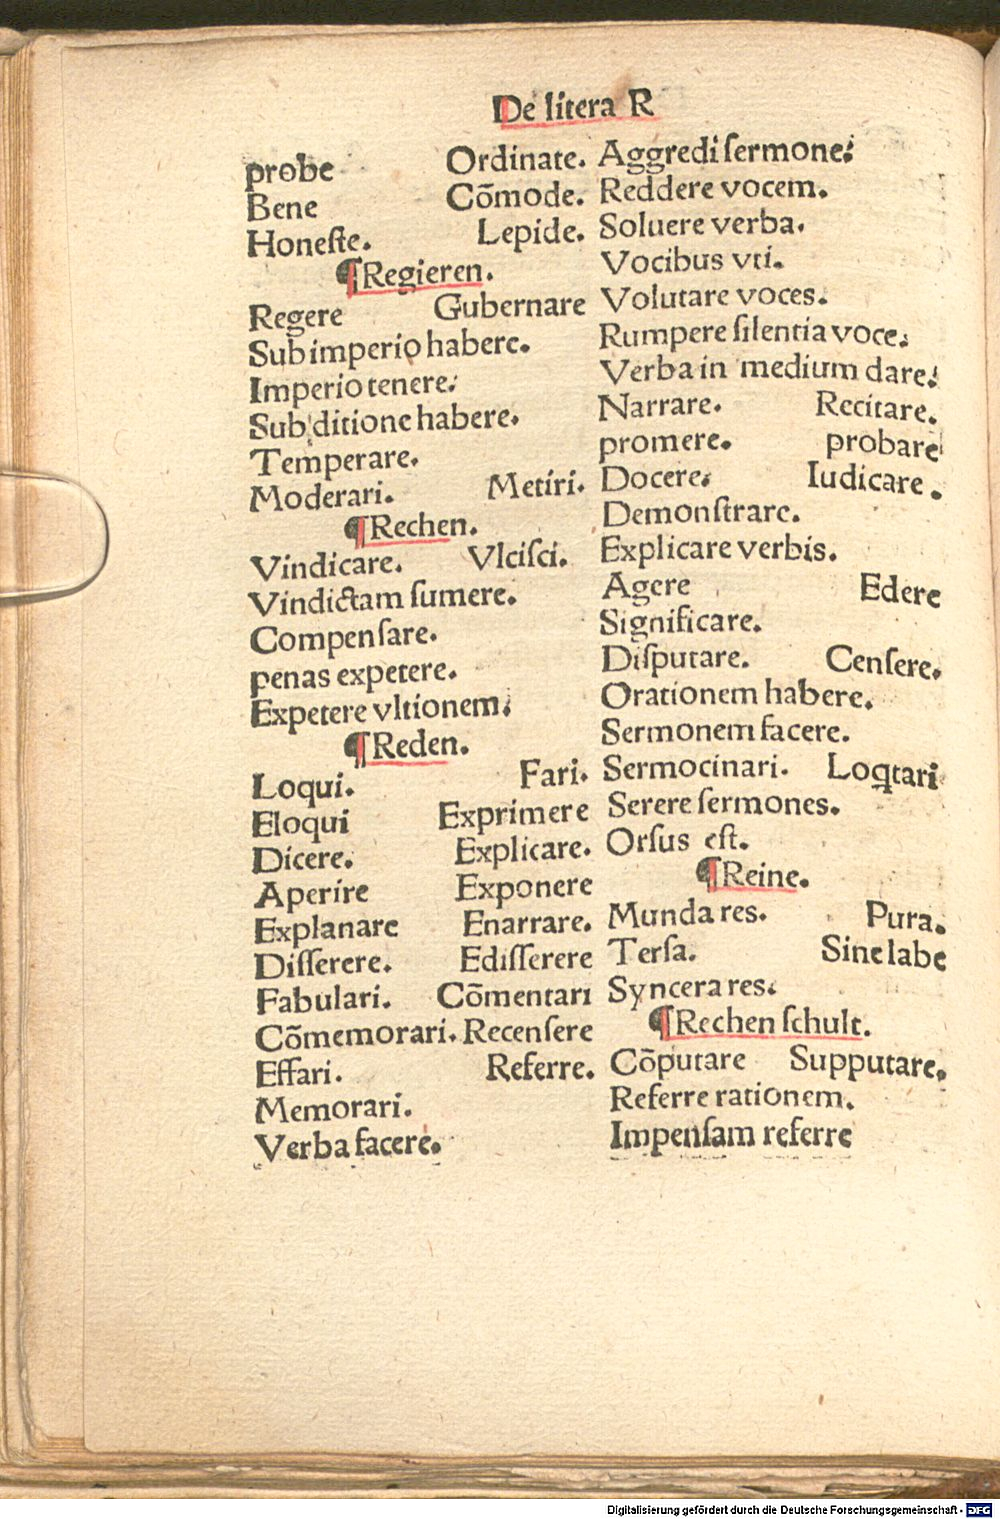 De litera R
probe Ordinate.
Bene Cõmode.
Honeſte. Lepide.
¶Regieren.
Regere Gubernare
Sub imperio habere.
Imperio tenere.
Sub ditione habere.
Temperare.
Moderari. Metiri.
¶Rechen.
Vindicare. Vlciſci.
Vindictam ſumere.
Compenſare.
penas expetere.
Expetere vltionem.
¶Reden.
Loqui. Fari.
Eloqui Exprimere
Dicere. Explicare.
Aperire Exponere
Explanare Enarrare.
Diſſerere. Ediſſerere
Fabulari. Cõmentari
Cõmemorari. Recenſere
Effari. Referre.
Memorari.
Verba facere.
Aggredi ſermone.
Reddere vocem.
Soluere verba.
Vocibus vti.
Volutare voces.
Rumpere ſilentia voce.
Verba in medium dare.
Narrare. Recitare.
promere. probare
Docere. Iudicare.
Demonſtrare.
Explicare verbis.
Agere Edere
Significare.
Diſputare. Cenſere.
Orationem habere.
Sermonem facere.
Sermocinari. Loq̃tari
Serere ſermones.
Orſus eſt.
¶Reine.
Munda res. Pura.
Terſa. Sine labe
Syncera res.
¶Rechen ſchult.
Cõputare Supputare.
Referre rationem.
Impenſam referre
Digitalisierung gefördert durch die Deutsche Forschungsgemeinschaft - DFG